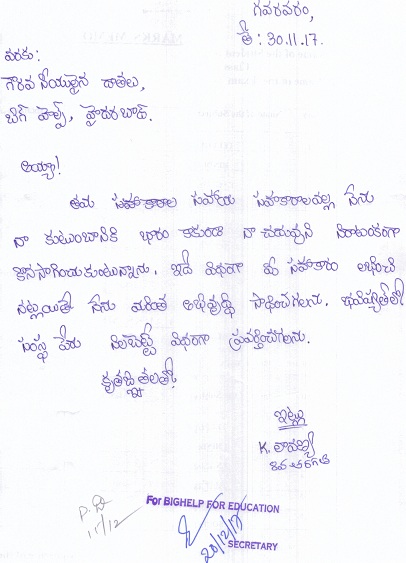 గవరవరం,
తే: 30.11.17.
వరకు:
గౌరవనీయులైన దాతలు,
బిగ్ హెల్ప్, హైదరబాద్.
అయ్యా!
తమ సహకారాల సహాయ సహకారాలవల్ల నేను
నా కుటుంబానికి భారం కాకుండా నా చదువుని నిరాటంకంగా
కొనసాగించుకుంటున్నాను. ఇదే విధంగా మీ సహకారం లభించి
నట్లయితే నేను మరింత అభివృద్ధి సాధించగలను. భవిష్యత్‌లో
సంస్థ పేరు నిలబెట్టే విధంగా ప్రవర్తించగలను.
కృతజ్ఞతలతో!
ఇట్లు
K. లావణ్య
8వ తరగతి
11/12
For BIGHELP FOR EDUCATION
20/12/17
SECRETARY